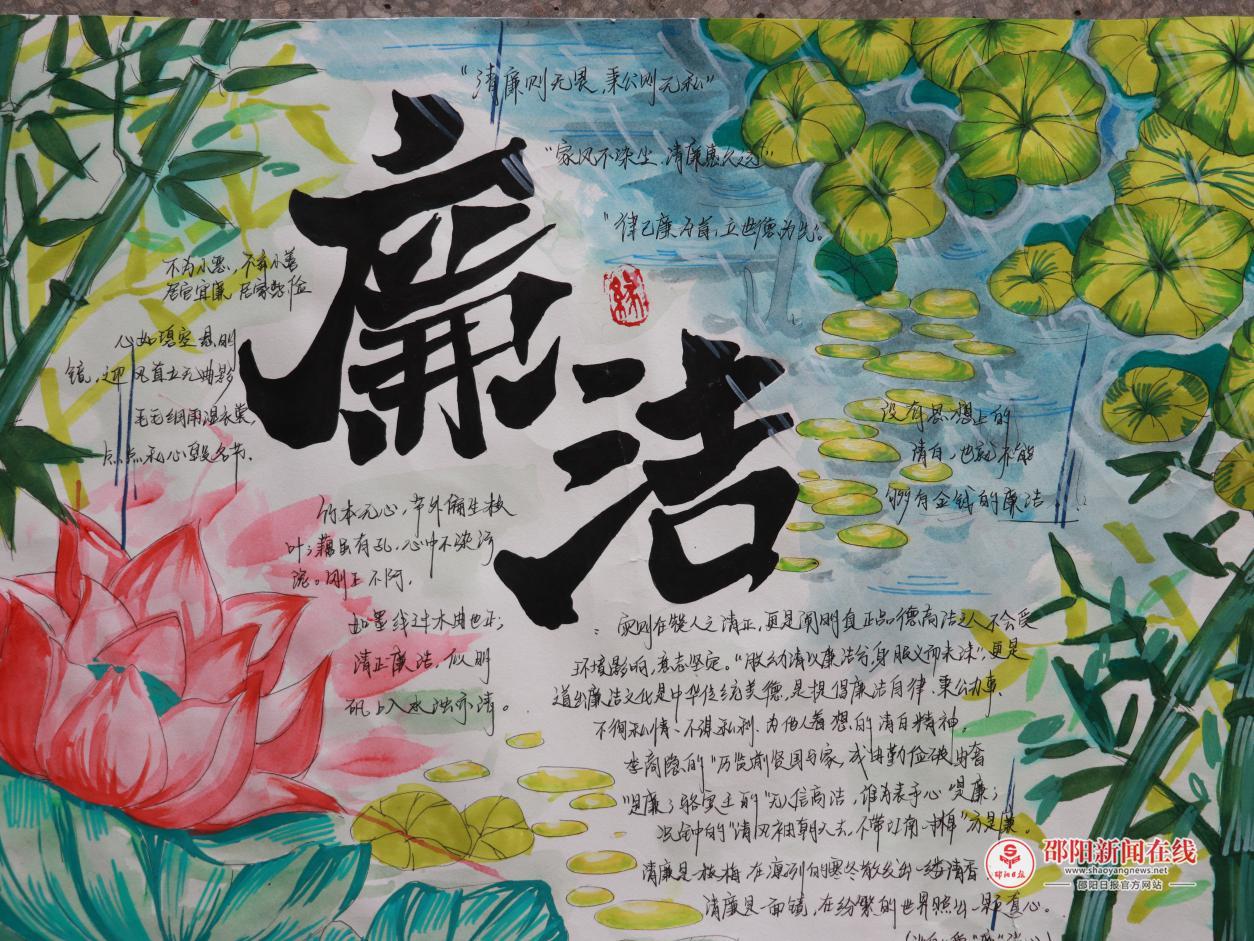 "清廉则无畏,秉公则无私"
"家风不染尘,清廉惠久远"
"律己廉为首,立世德为先。
廉洁
不为小恶,不弃小善
居官宜廉,居家
心如碧空悬明
镜,迎风直立无曲影
毛毛细雨湿衣裳,
点点私心毁名节.
竹本无心,节外偏生枝
叶;藕虽有孔,心中不染污
泥。刚正不阿,
如墨线过木曲也正;
清正廉洁,似明
矾入水浊亦清。
没有思想上的
清白,也就不能
够有金钱的廉洁
人之清正,更是阐明真正品德高洁之人不会受
环境影响,意志坚定。"朕幼清以廉洁兮,身服义而未沫",更是
廉洁文化是中华传统美德,是提倡廉洁自律、秉公办事、
不徇私情、不谋私利、为他人着想的清白精神。
李商隐的"历览前贤国与家,成由勤俭破由奢
"是廉;骆宾王的"无人信高洁,谁为表予心"是廉;
况钟的"清风两袖朝天去,不带江南一寸棉"方是廉。
清廉是一枝梅,在凛冽的寒冬散发出一缕清香
清廉是一面镜,在纷繁的世界照出一颗真心。
邵阳日报
邵阳新闻在线
www.shaoyangnews.net
邵阳日报官方网站